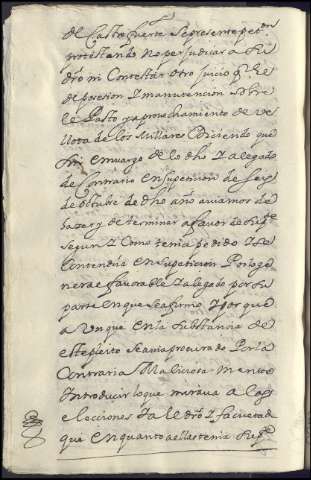 de Castro fuerte se presente pet.on
protestando no perjudicar a su
dro ni contestar otro juicio q. el
de posesion y manutencion sobre
el Pasto y aprovechamiento de ve
llota de los Millares Diciendo que
sin embargo de lo dho y alegado
de contrario en su peticion de seis
de octubre de dho año aviamos de
hazer y determinar a favor de su pte
segun y como tenia pedido y se
contenia en su peticion Por lo ge
neral favorable y alegado por su
parte en que se afirmo y por que
a Unque en la substancia de
este pleito se avia procurado por la
contraria Maliciosa mente
introducir lo que mirava a las
elecciones y al dro y facultad
que en quanto a ellas tenia su pte